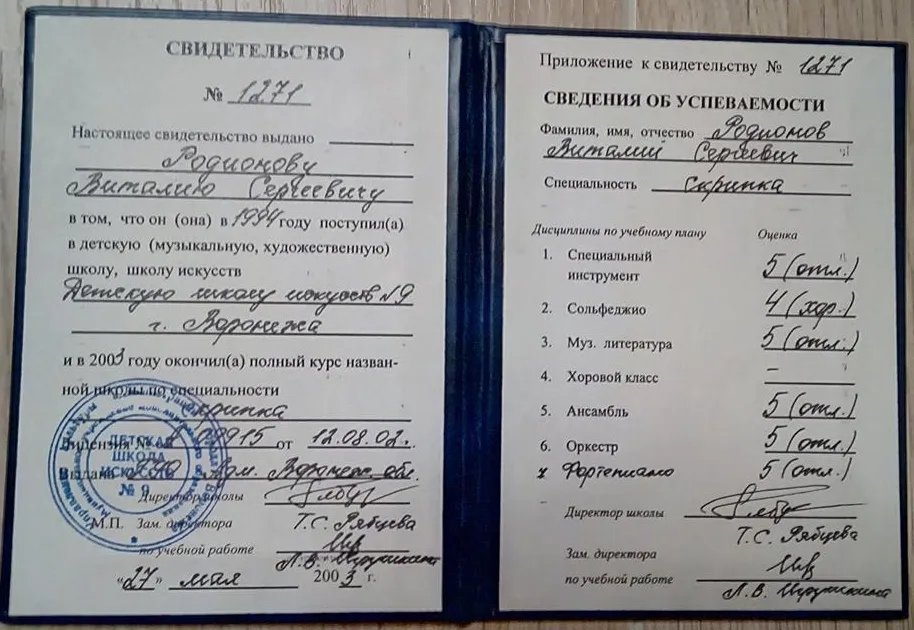 СВИДЕТЕЛЬСТВО
№ 1271
Настоящее свидетельство выдано
Родионову
Виталию Сергеевичу
в том, что он (она) в 1994 году поступил(а)
в детскую (музыкальную, художественную)
школу, школу искусств
Детскую школу искусств №9
г. Воронежа
и в 2003 году окончил(а) полный курс назван-
ной школы по специальности
скрипка
Лицензия № 08915 от 12.08.02г.
Выдана Воронеж. обл.
Директор школы
Т.С. Рябцева
М.П. Зам. директора
по учебной работе
Л.В.
«27» мая 2003 г.
ДЕТСКАЯ
ШКОЛА
ИСКУССТВ
№ 9
Приложение к свидетельству № 1271
СВЕДЕНИЯ ОБ УСПЕВАЕМОСТИ
Фамилия, имя, отчество Родионов
Виталий Сергеевич
Специальность скрипка
Дисциплины по учебному плану Оценка
1. Специальный
инструмент 5 (отл.)
2. Сольфеджио 4 (хор.)
3. Муз. литература 5 (отл.)
4. Хоровой класс –
5. Ансамбль 5 (отл.)
6. Оркестр 5 (отл.)
Фортепиано 5 (отл.)
Директор школы
Т.С. Рябцева
Зам. директора
по учебной работе
Л.В.